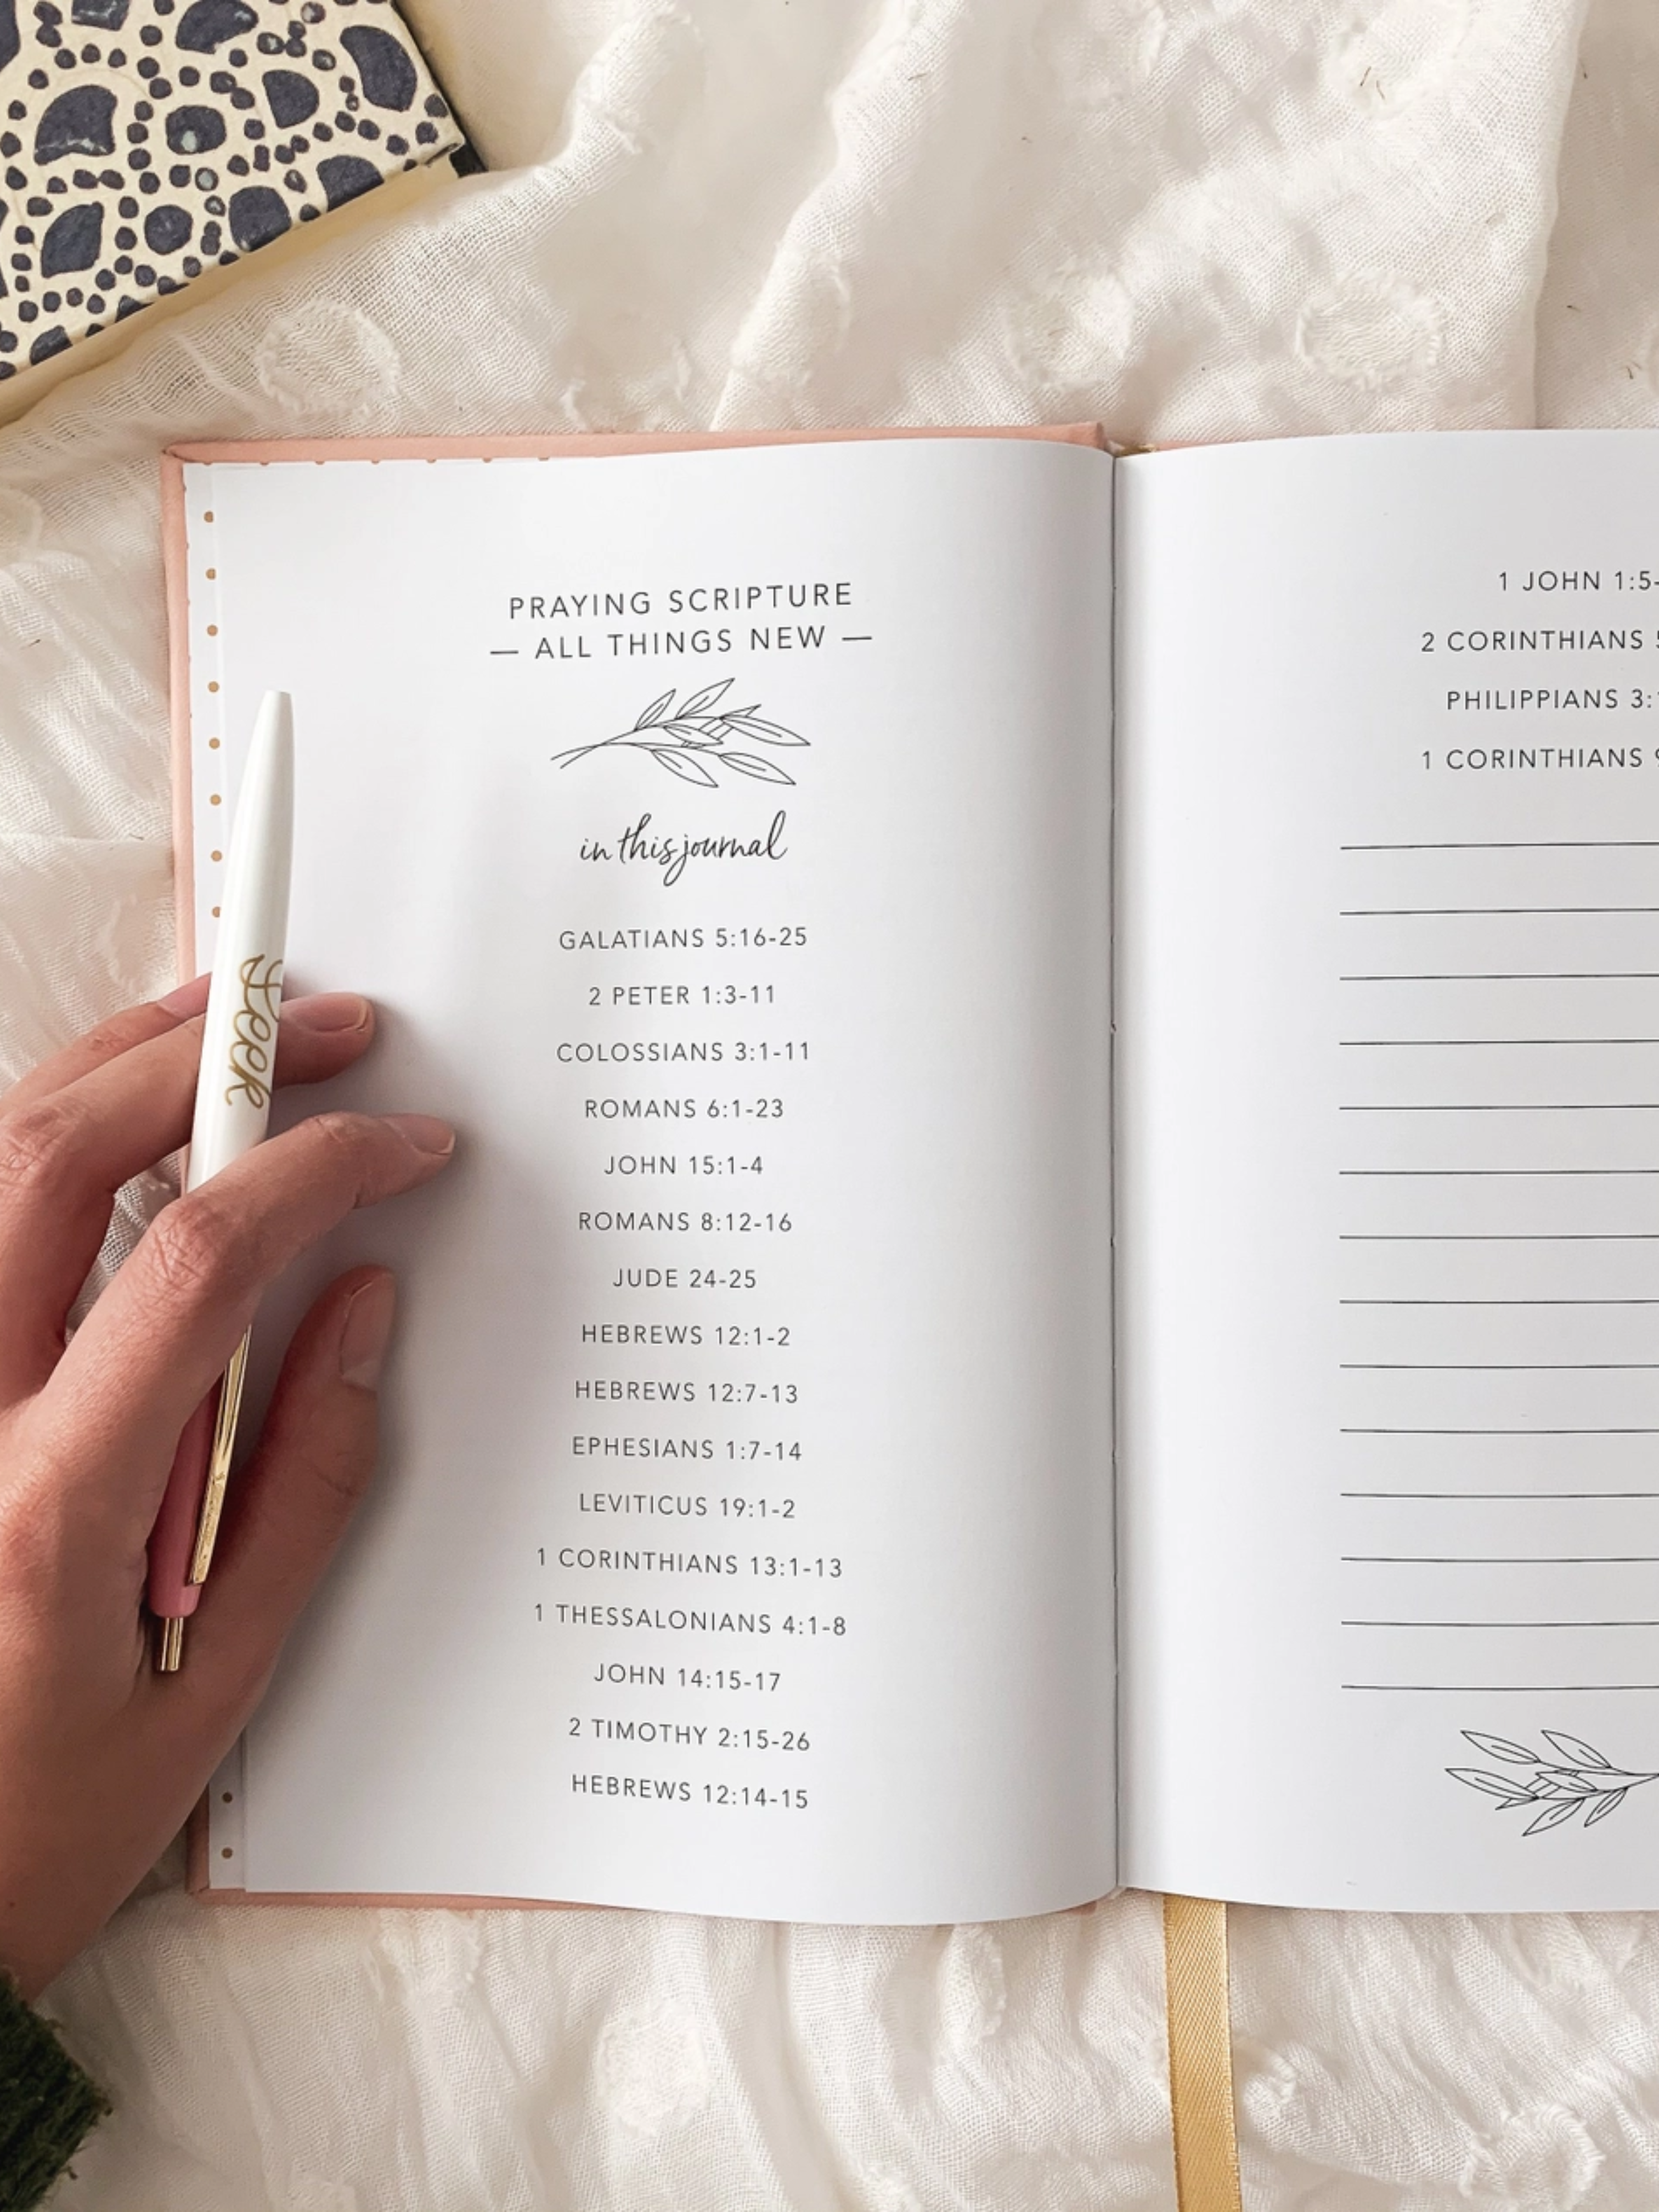 PRAYING SCRIPTURE
— ALL THINGS NEW —
in this journal
GALATIANS 5:16-25
2 PETER 1:3-11
COLOSSIANS 3:1-11
ROMANS 6:1-23
JOHN 15:1-4
ROMANS 8:12-16
JUDE 24-25
HEBREWS 12:1-2
HEBREWS 12:7-13
EPHESIANS 1:7-14
LEVITICUS 19:1-2
1 CORINTHIANS 13:1-13
1 THESSALONIANS 4:1-8
JOHN 14:15-17
2 TIMOTHY 2:15-26
HEBREWS 12:14-15
Seek
1 JOHN 1:5-
2 CORINTHIANS
PHILIPPIANS 3:
1 CORINTHIANS